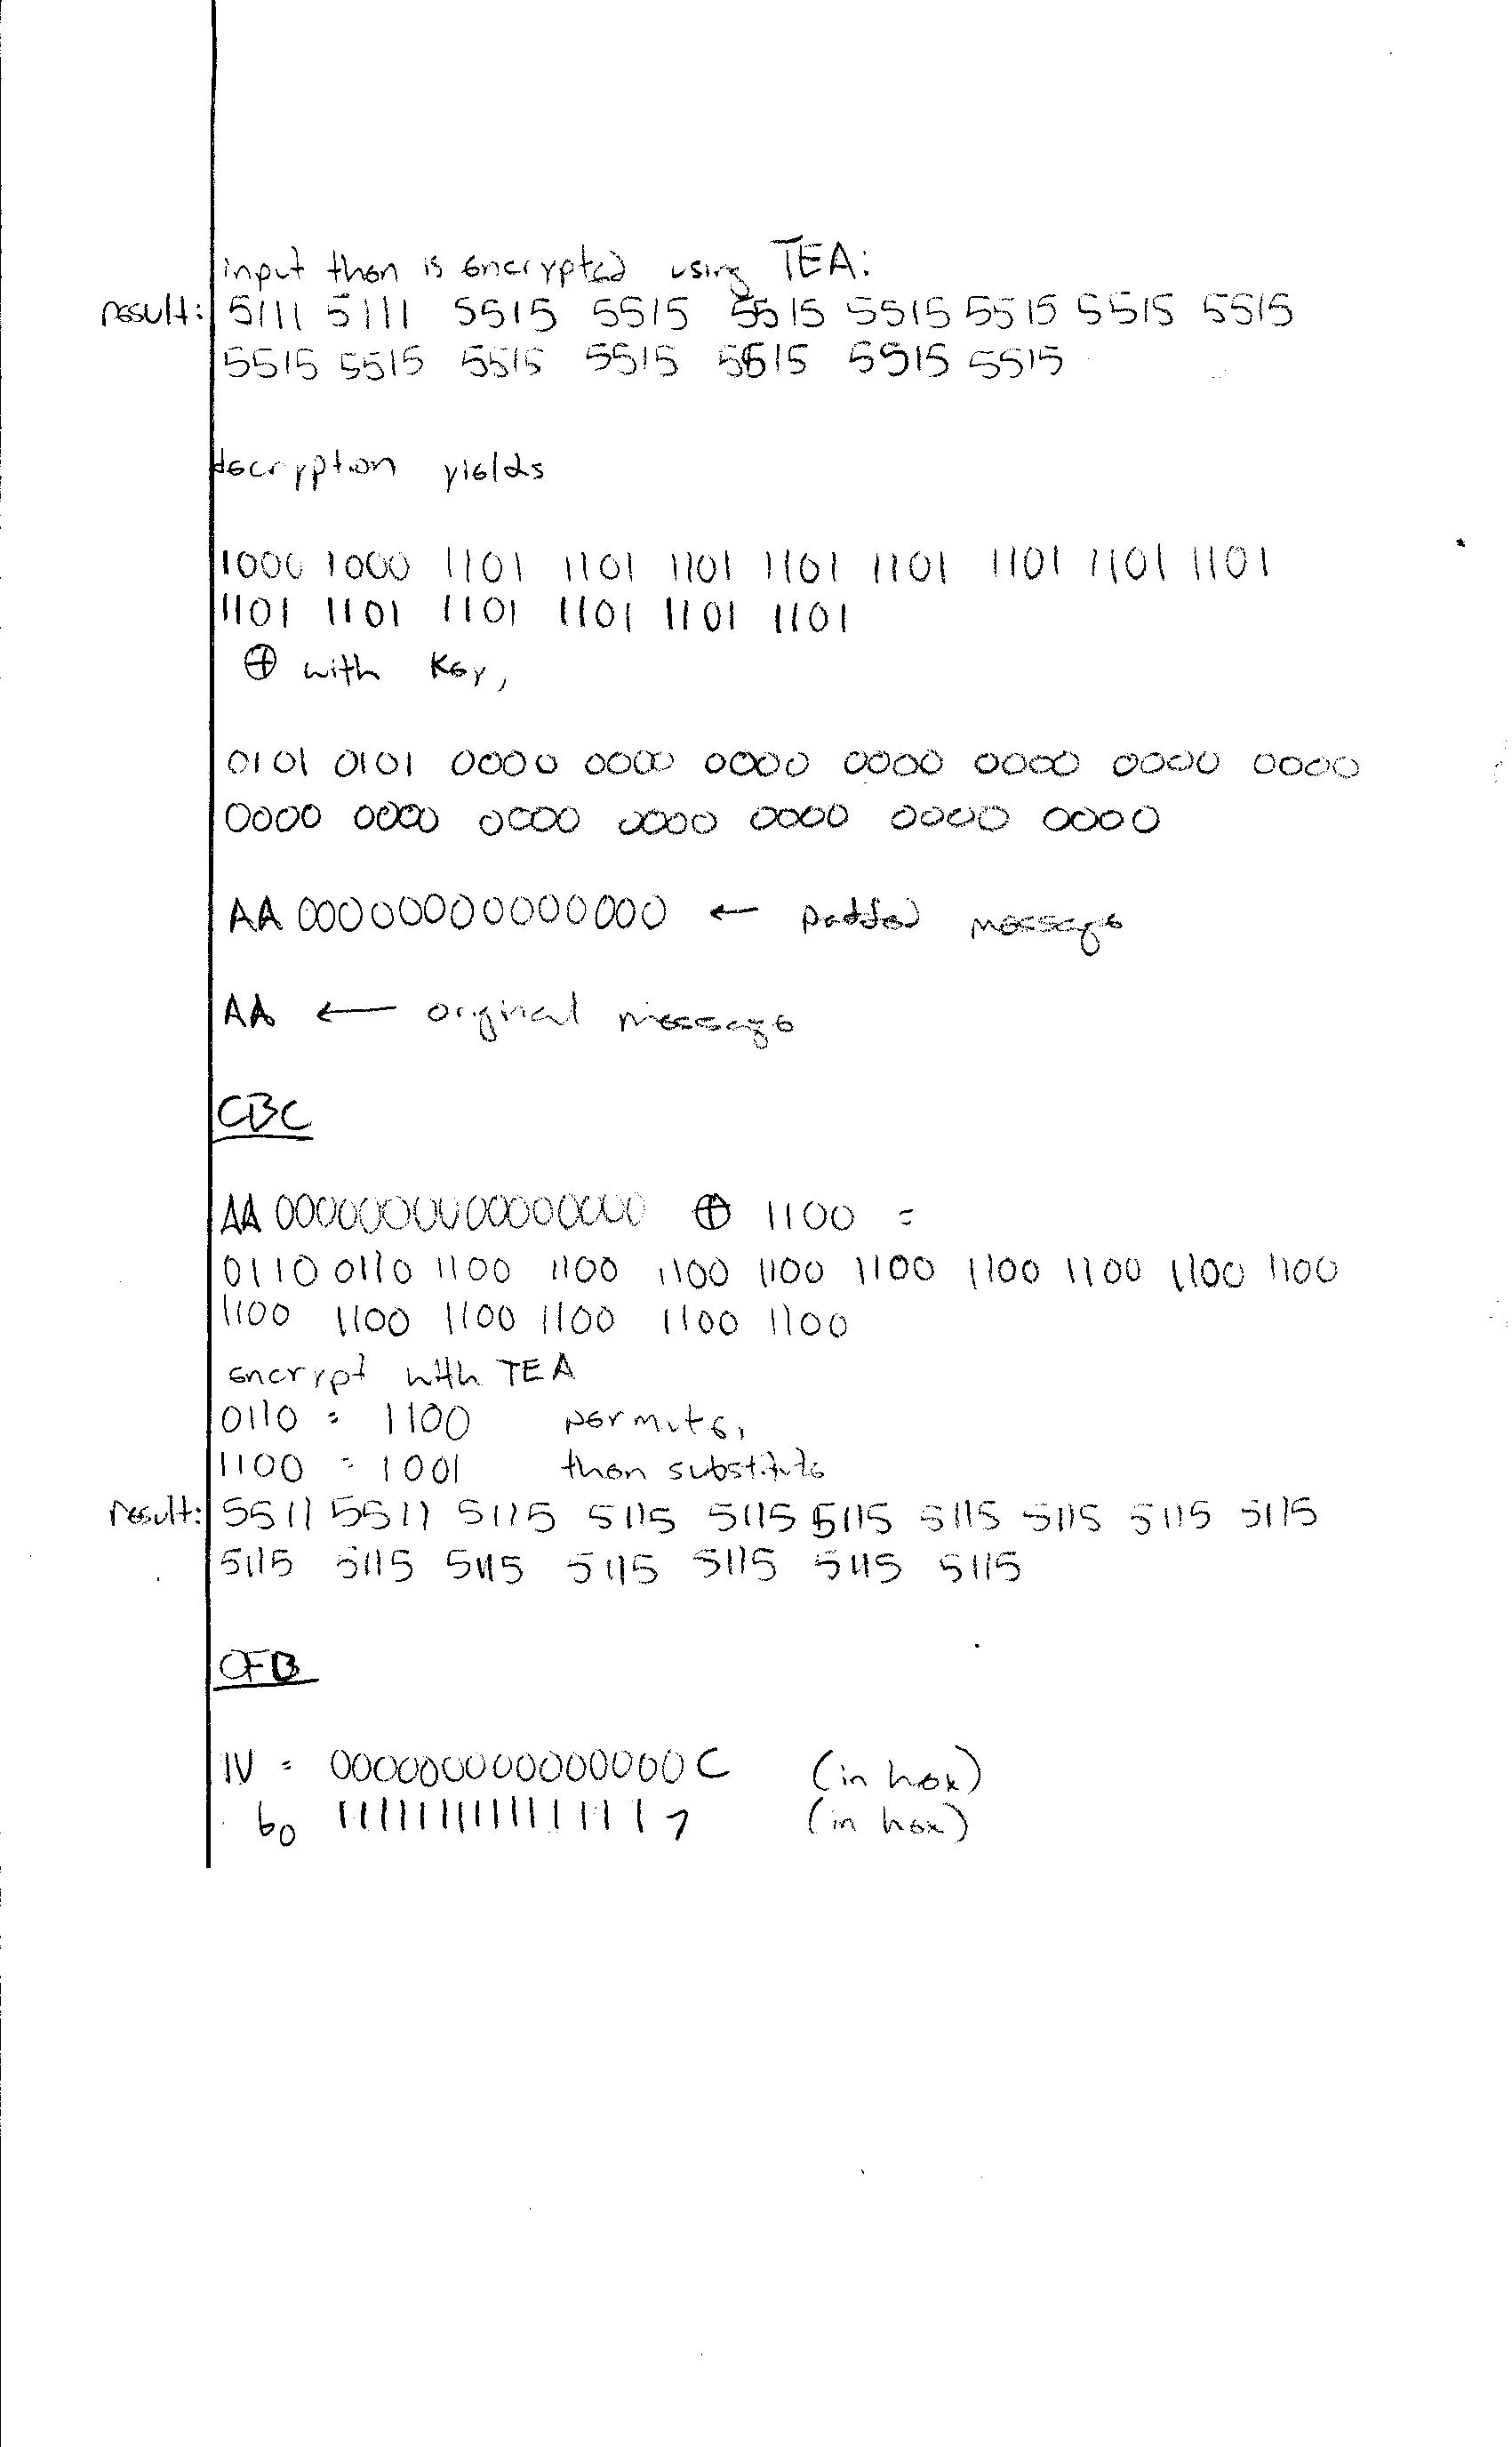 input then is encrypted using TEA:
result: 5111 5111 5515 5515 5515 5515 5515 5515 5515
5515 5515 5515 5515 5515 5515 5515
decryption yields
1000 1000 1101 1101 1101 1101 1101 1101 1101 1101
1101 1101 1101 1101 1101 1101
⊕ with key,
0101 0101 0000 0000 0000 0000 0000 0000 0000
0000 0000 0000 0000 0000 0000 0000
AA 00000000000000 ← padded message
AA ← original message
CBC
AA 000000000000000 ⊕ 1100 =
0110 0110 1100 1100 1100 1100 1100 1100 1100 1100 1100
1100 1100 1100 1100 1100 1100
encrypt with TEA
0110 = 1100 permute,
1100 = 1001 then substitute
result: 5511 5511 5115 5115 5115 5115 5115 5115 5115 5115
5115 5115 5115 5115 5115 5115 5115
OFB
IV = 000000000000000C (in hex)
b0 1111111111111117 (in hex)